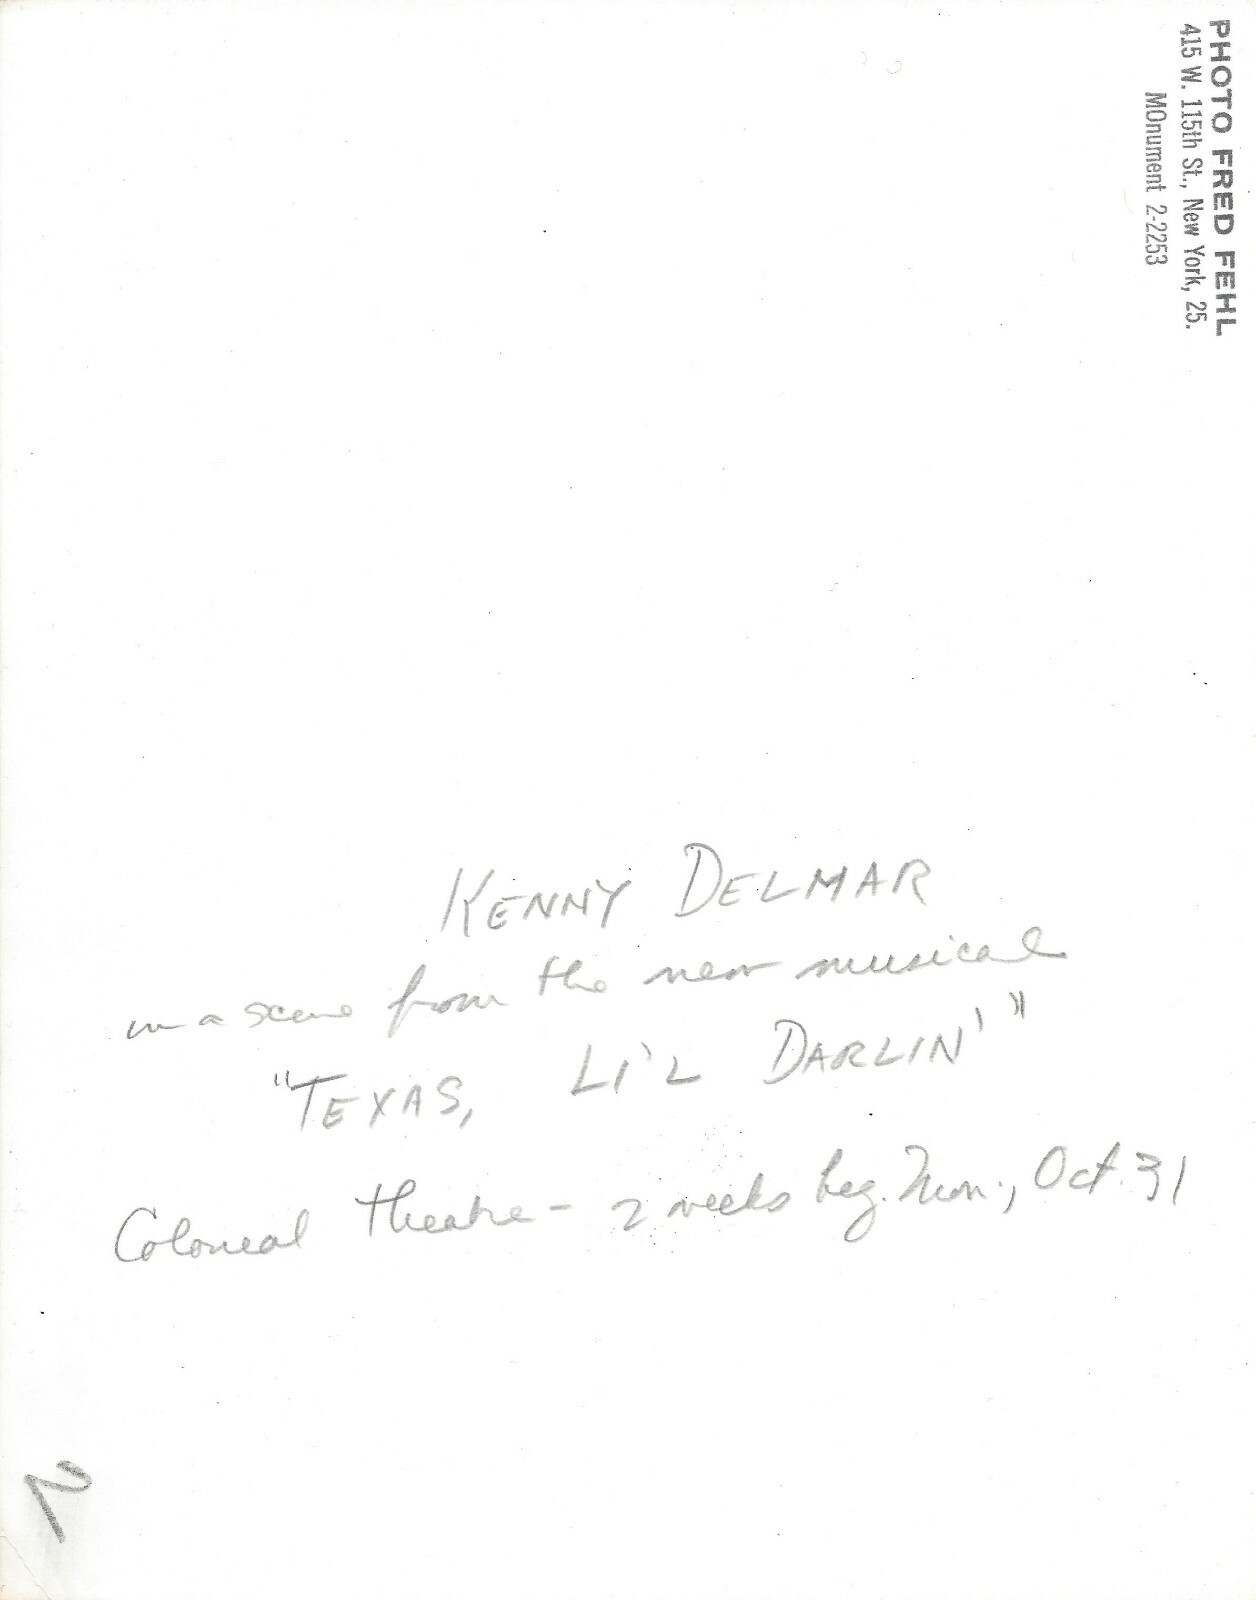 PHOTO FRED FEHL
415 W. 115th St., New York, 25.
MOnument 2-2253
KENNY DELMAR
in a scene from the new musical
"TEXAS, LI'L DARLIN'"
Colonial Theatre - 2 weeks beg. Mon., Oct. 31
2